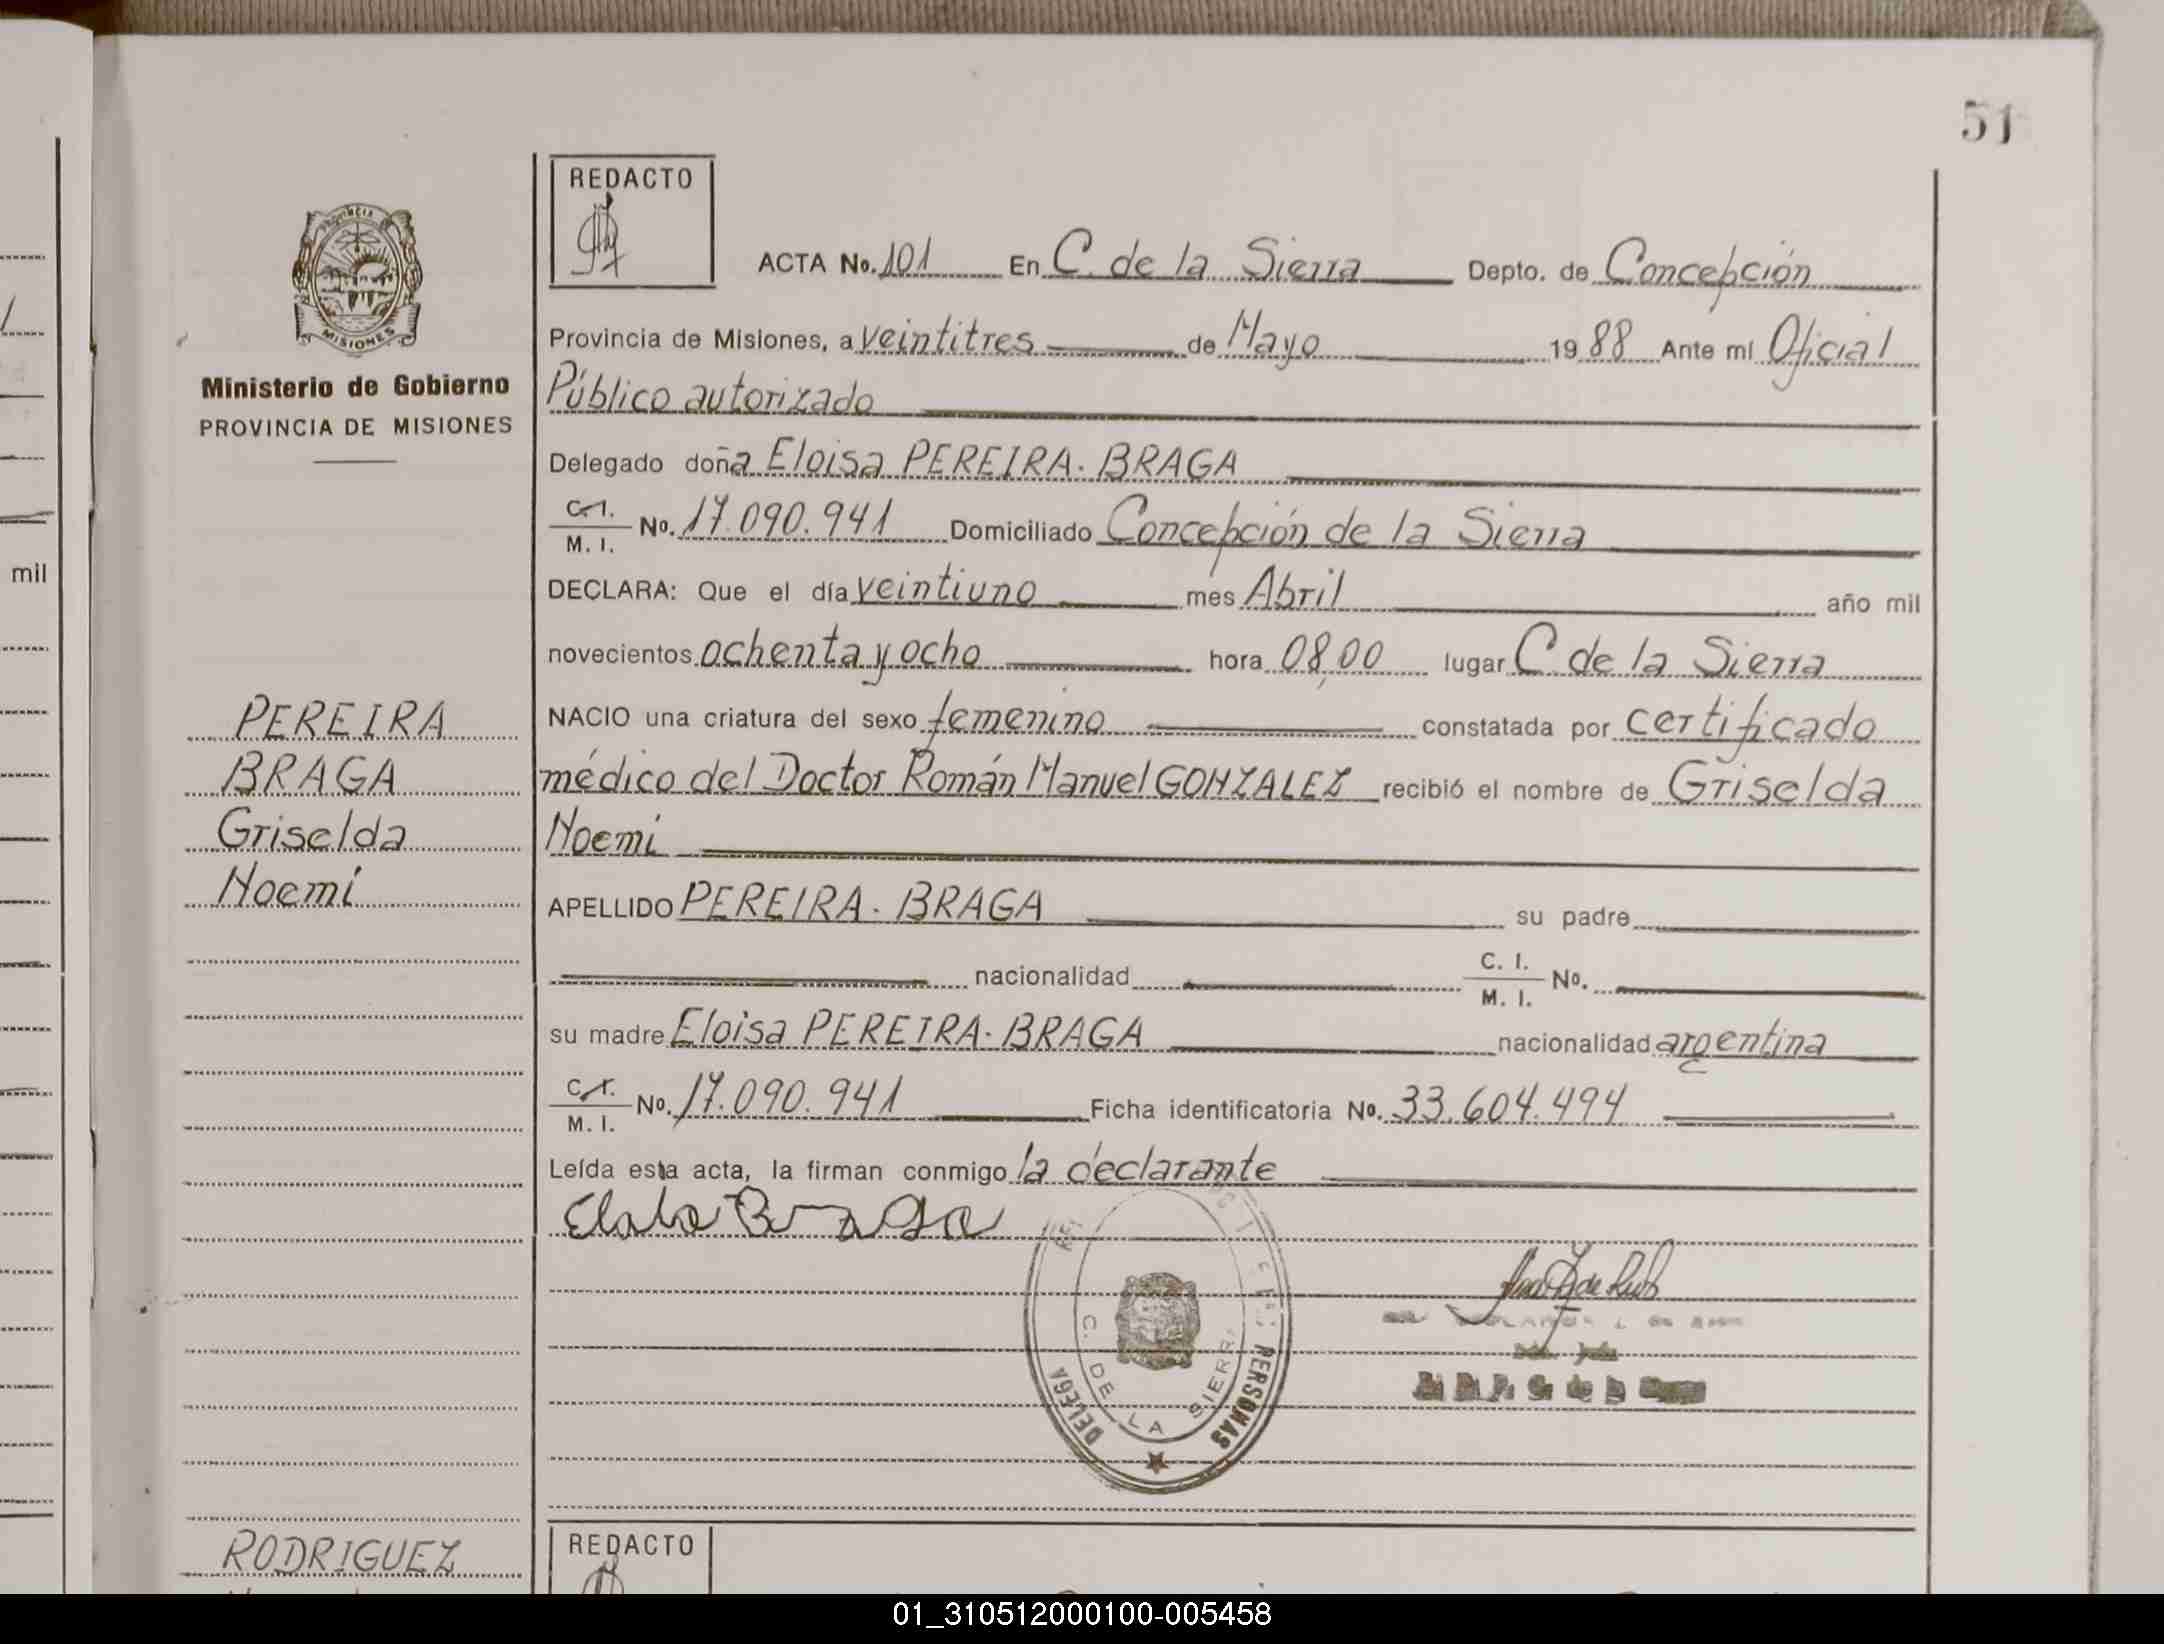 51
mil
PROVINCIA
MISIONES
Ministerio de Gobierno
PROVINCIA DE MISIONES
PEREIRA
BRAGA
Griselda
Noemí
RODRIGUEZ
REDACTO
ACTA No. 101 En C. de la Sierra Depto. de Concepción
Provincia de Misiones, a veintitres de Mayo 1988 Ante mí Oficial
Público autorizado
Delegado doña Eloisa PEREIRA. BRAGA
C. I. M. I. No. 17.090.941 Domiciliado Concepción de la Sierra
DECLARA: Que el día veintiuno mes Abril año mil
novecientos ochenta y ocho hora 08,00 lugar C. de la Sierra
NACIO una criatura del sexo femenino constatada por certificado
médico del Doctor Román Manuel GONZALEZ recibió el nombre de Griselda
Noemí
APELLIDO PEREIRA. BRAGA su padre
nacionalidad C. I. M. I. No.
su madre Eloisa PEREIRA. BRAGA nacionalidad argentina
C. I. M. I. No. 17.090.941 Ficha identificatoria No. 33.604.494
Leída esta acta, la firman conmigo la declarante
Braga
DELEGA
PERSONAS
C. DE LA SIERRA
REDACTO
01_310512000100-005458